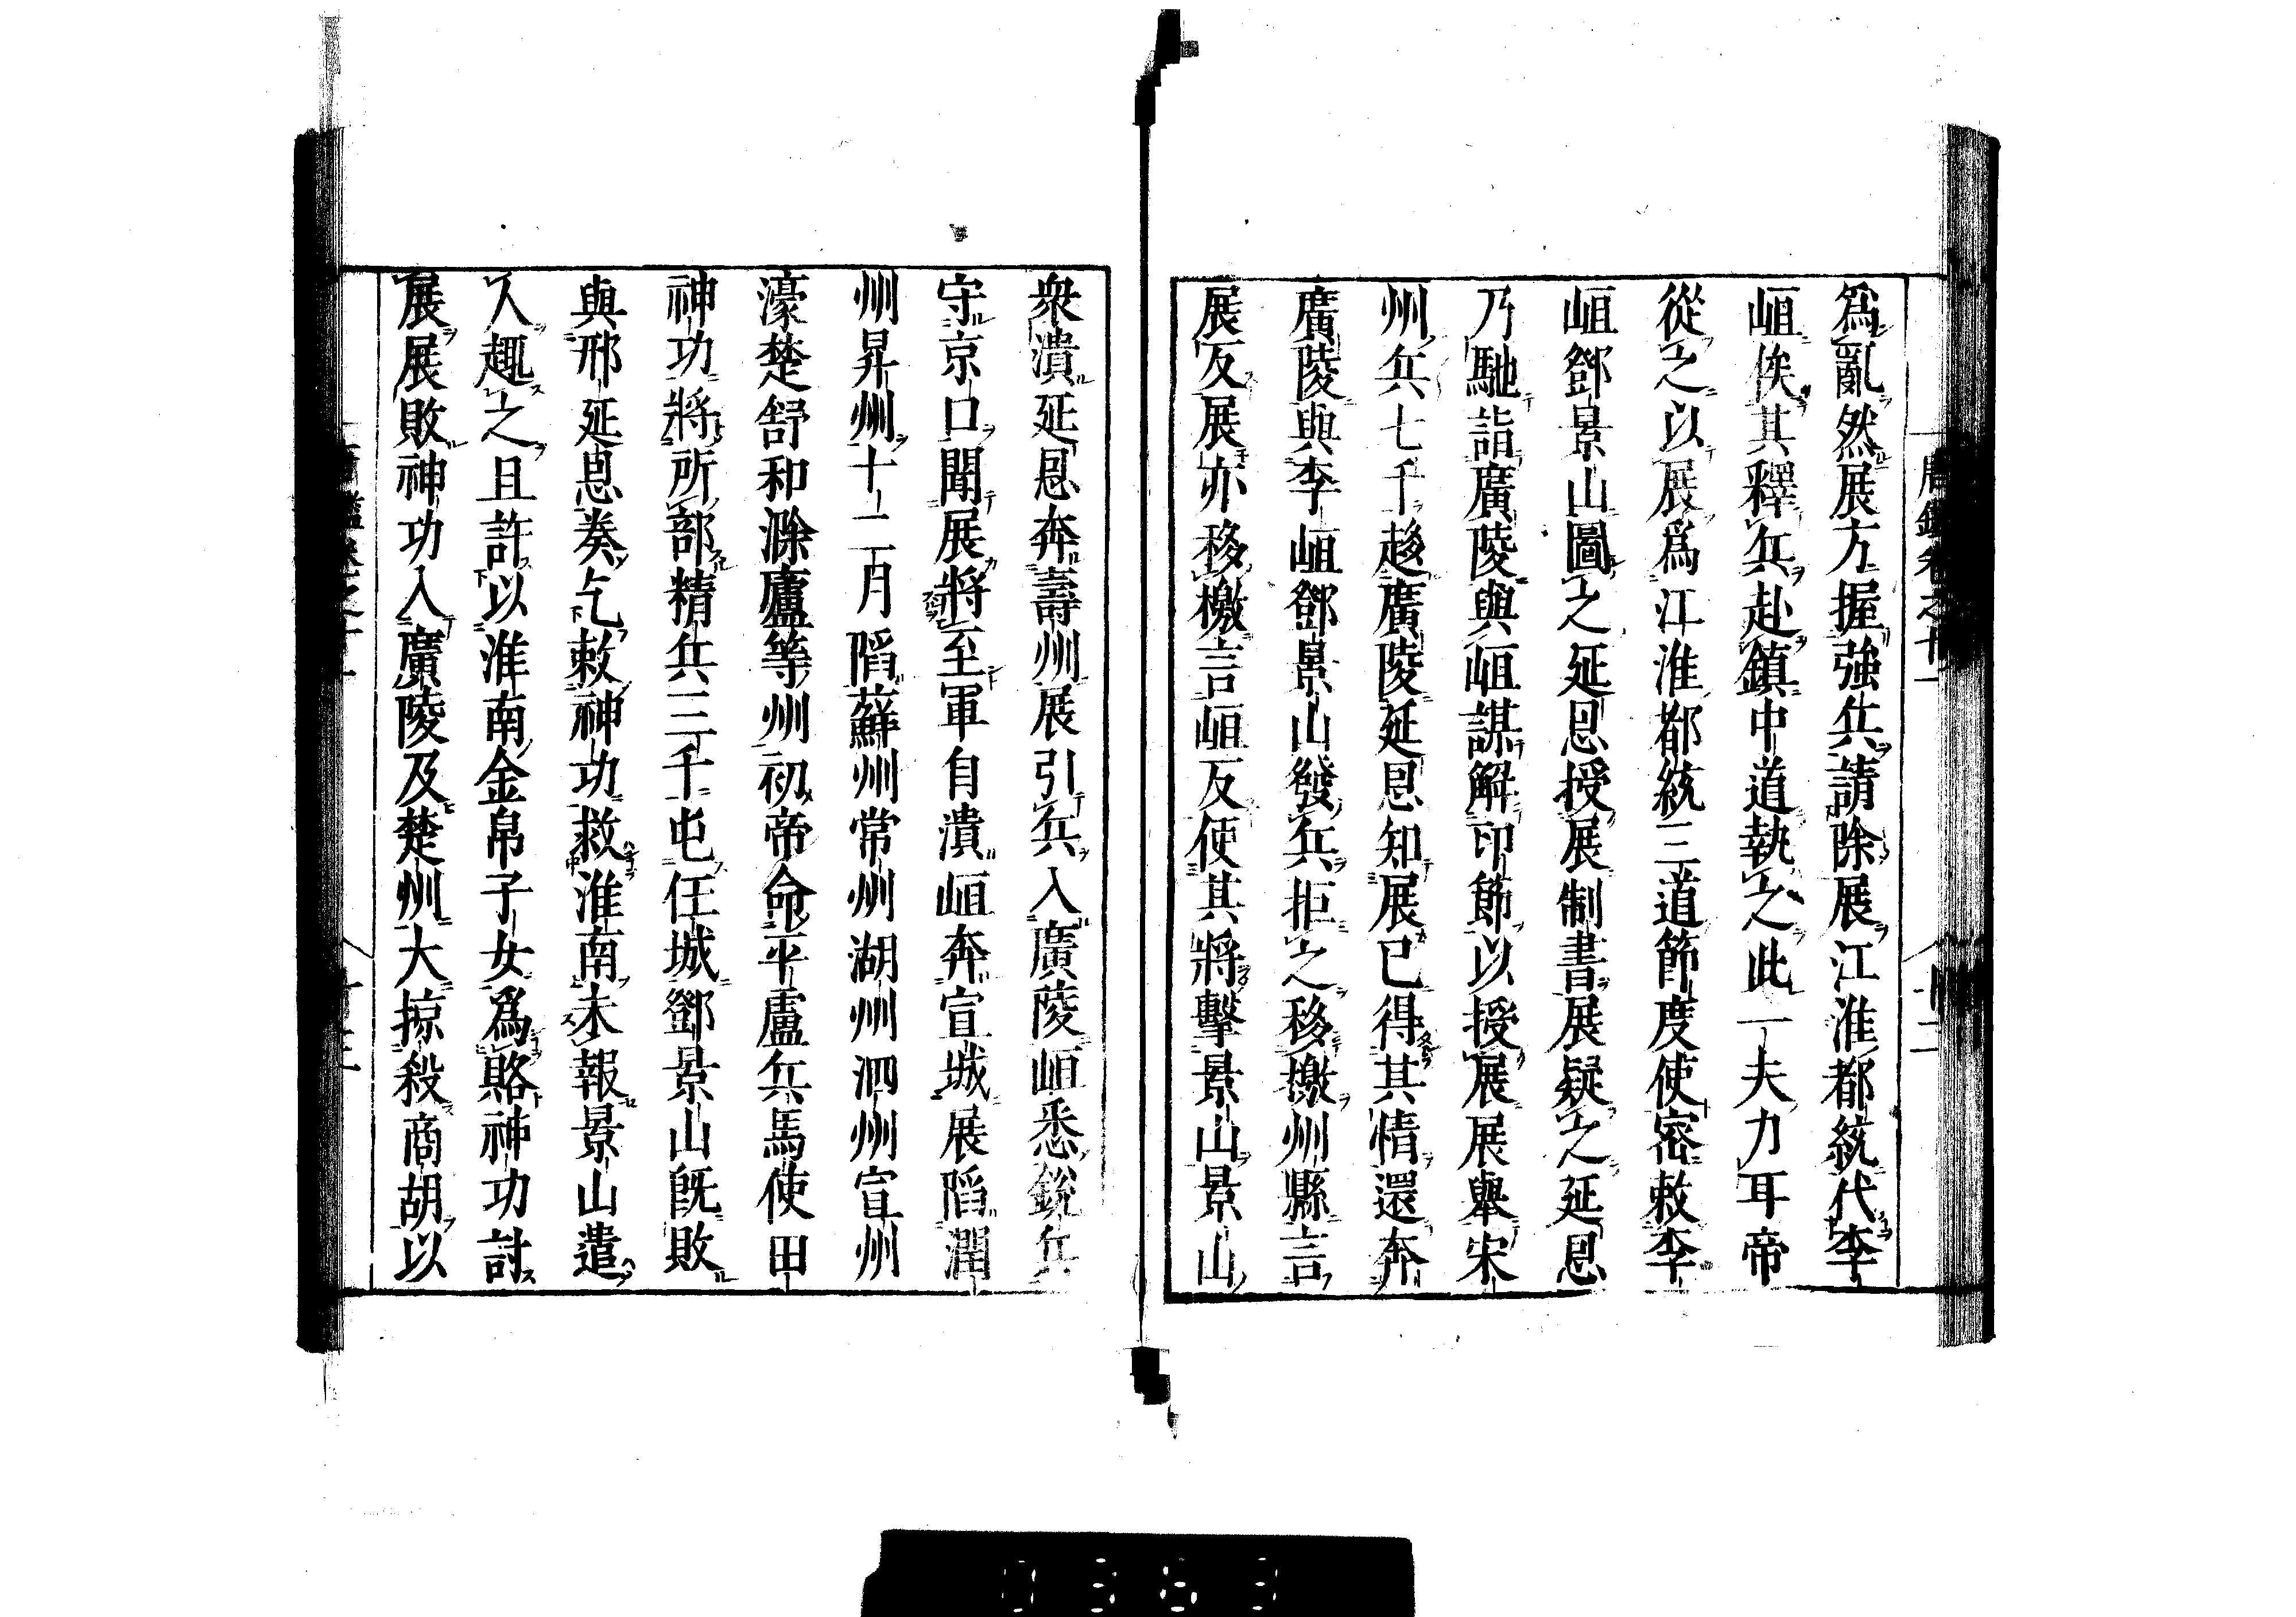 爲亂然展方握強兵請除展江淮都統代李
峘俟其釋兵赴鎮中道執之此一夫力耳帝
從之以展爲江淮都統三道節度使密敕李
峘鄧景山圖之延恩授展制書展疑之延恩
乃馳詣廣陵與峘謀解印節以授展展舉宋
州兵七千趍廣陵延恩知展已得其情還奔
廣陵與李峘鄧景山發兵拒之移檄州縣言
展反展亦移檄言峘反使其將擊景山景山
衆潰延恩奔壽州展引兵入廣陵峘悉銳兵
守京口聞展將至軍自潰峘奔宣城展䧟潤
州昇州十二月䧟蘇州常州湖州泗州宣州
濠楚舒和滁廬等州初帝命平盧兵馬使田
神功將所部精兵三千屯任城鄧景山旣敗
與邢延恩奏乞敕神功救淮南未報景山遣
人趣之且許以淮南金帛子女爲賂神功討
展展敗神功入廣陵及楚州大掠殺商胡以